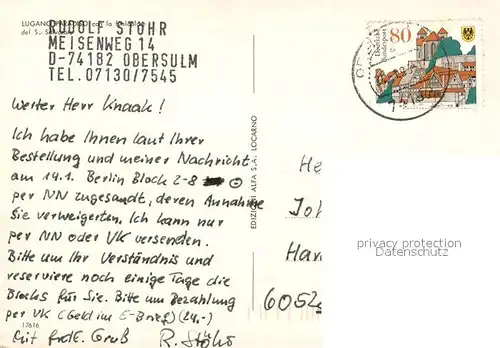 LUGANO
del S.
RUDOLF STÖHR
MEISENWEG 14
D-74182 OBERSULM
TEL. 07130/7545
Werter Herr Knaak!
Ich habe Ihnen laut Ihrer
Bestellung und meiner Nachricht
am 14.1. Berlin Block 2-8
per NN zugesandt, deren Annahme
Sie verweigerten. Ich kann nur
per NN oder VK versenden.
Bitte um Ihr Verständnis und
reserviere noch einige Tage die
Blocks für Sie. Bitte um Bezahlung
per VK (Geld im E-Brief) (24,-)
Mit frdl. Gruß R. Stöhr
17616
EDIZIONI ALFA S.A. LOCARNO
Deutsche
Bundespost
80
He
Joh
Har
6052
privacy protection
AnsichtskartenCenter